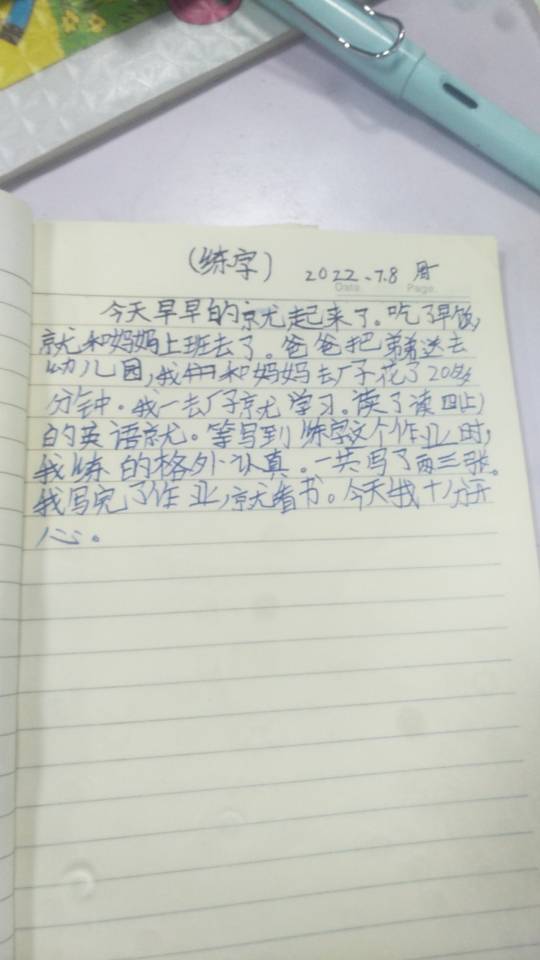 (练字) 2022.7.8 周
Date. Page.
今天早早的就起来了。吃了早饭,
就和妈妈上班去了。爸爸把弟弟送去
幼儿园,我和妈妈去厂子花了20多
分钟。我一去厂子就学习。读了读四上
的英语就。等写到练字这个作业时,
我练的格外认真。一共写了两三张。
我写完了作业,就看书。今天我十分开
心。